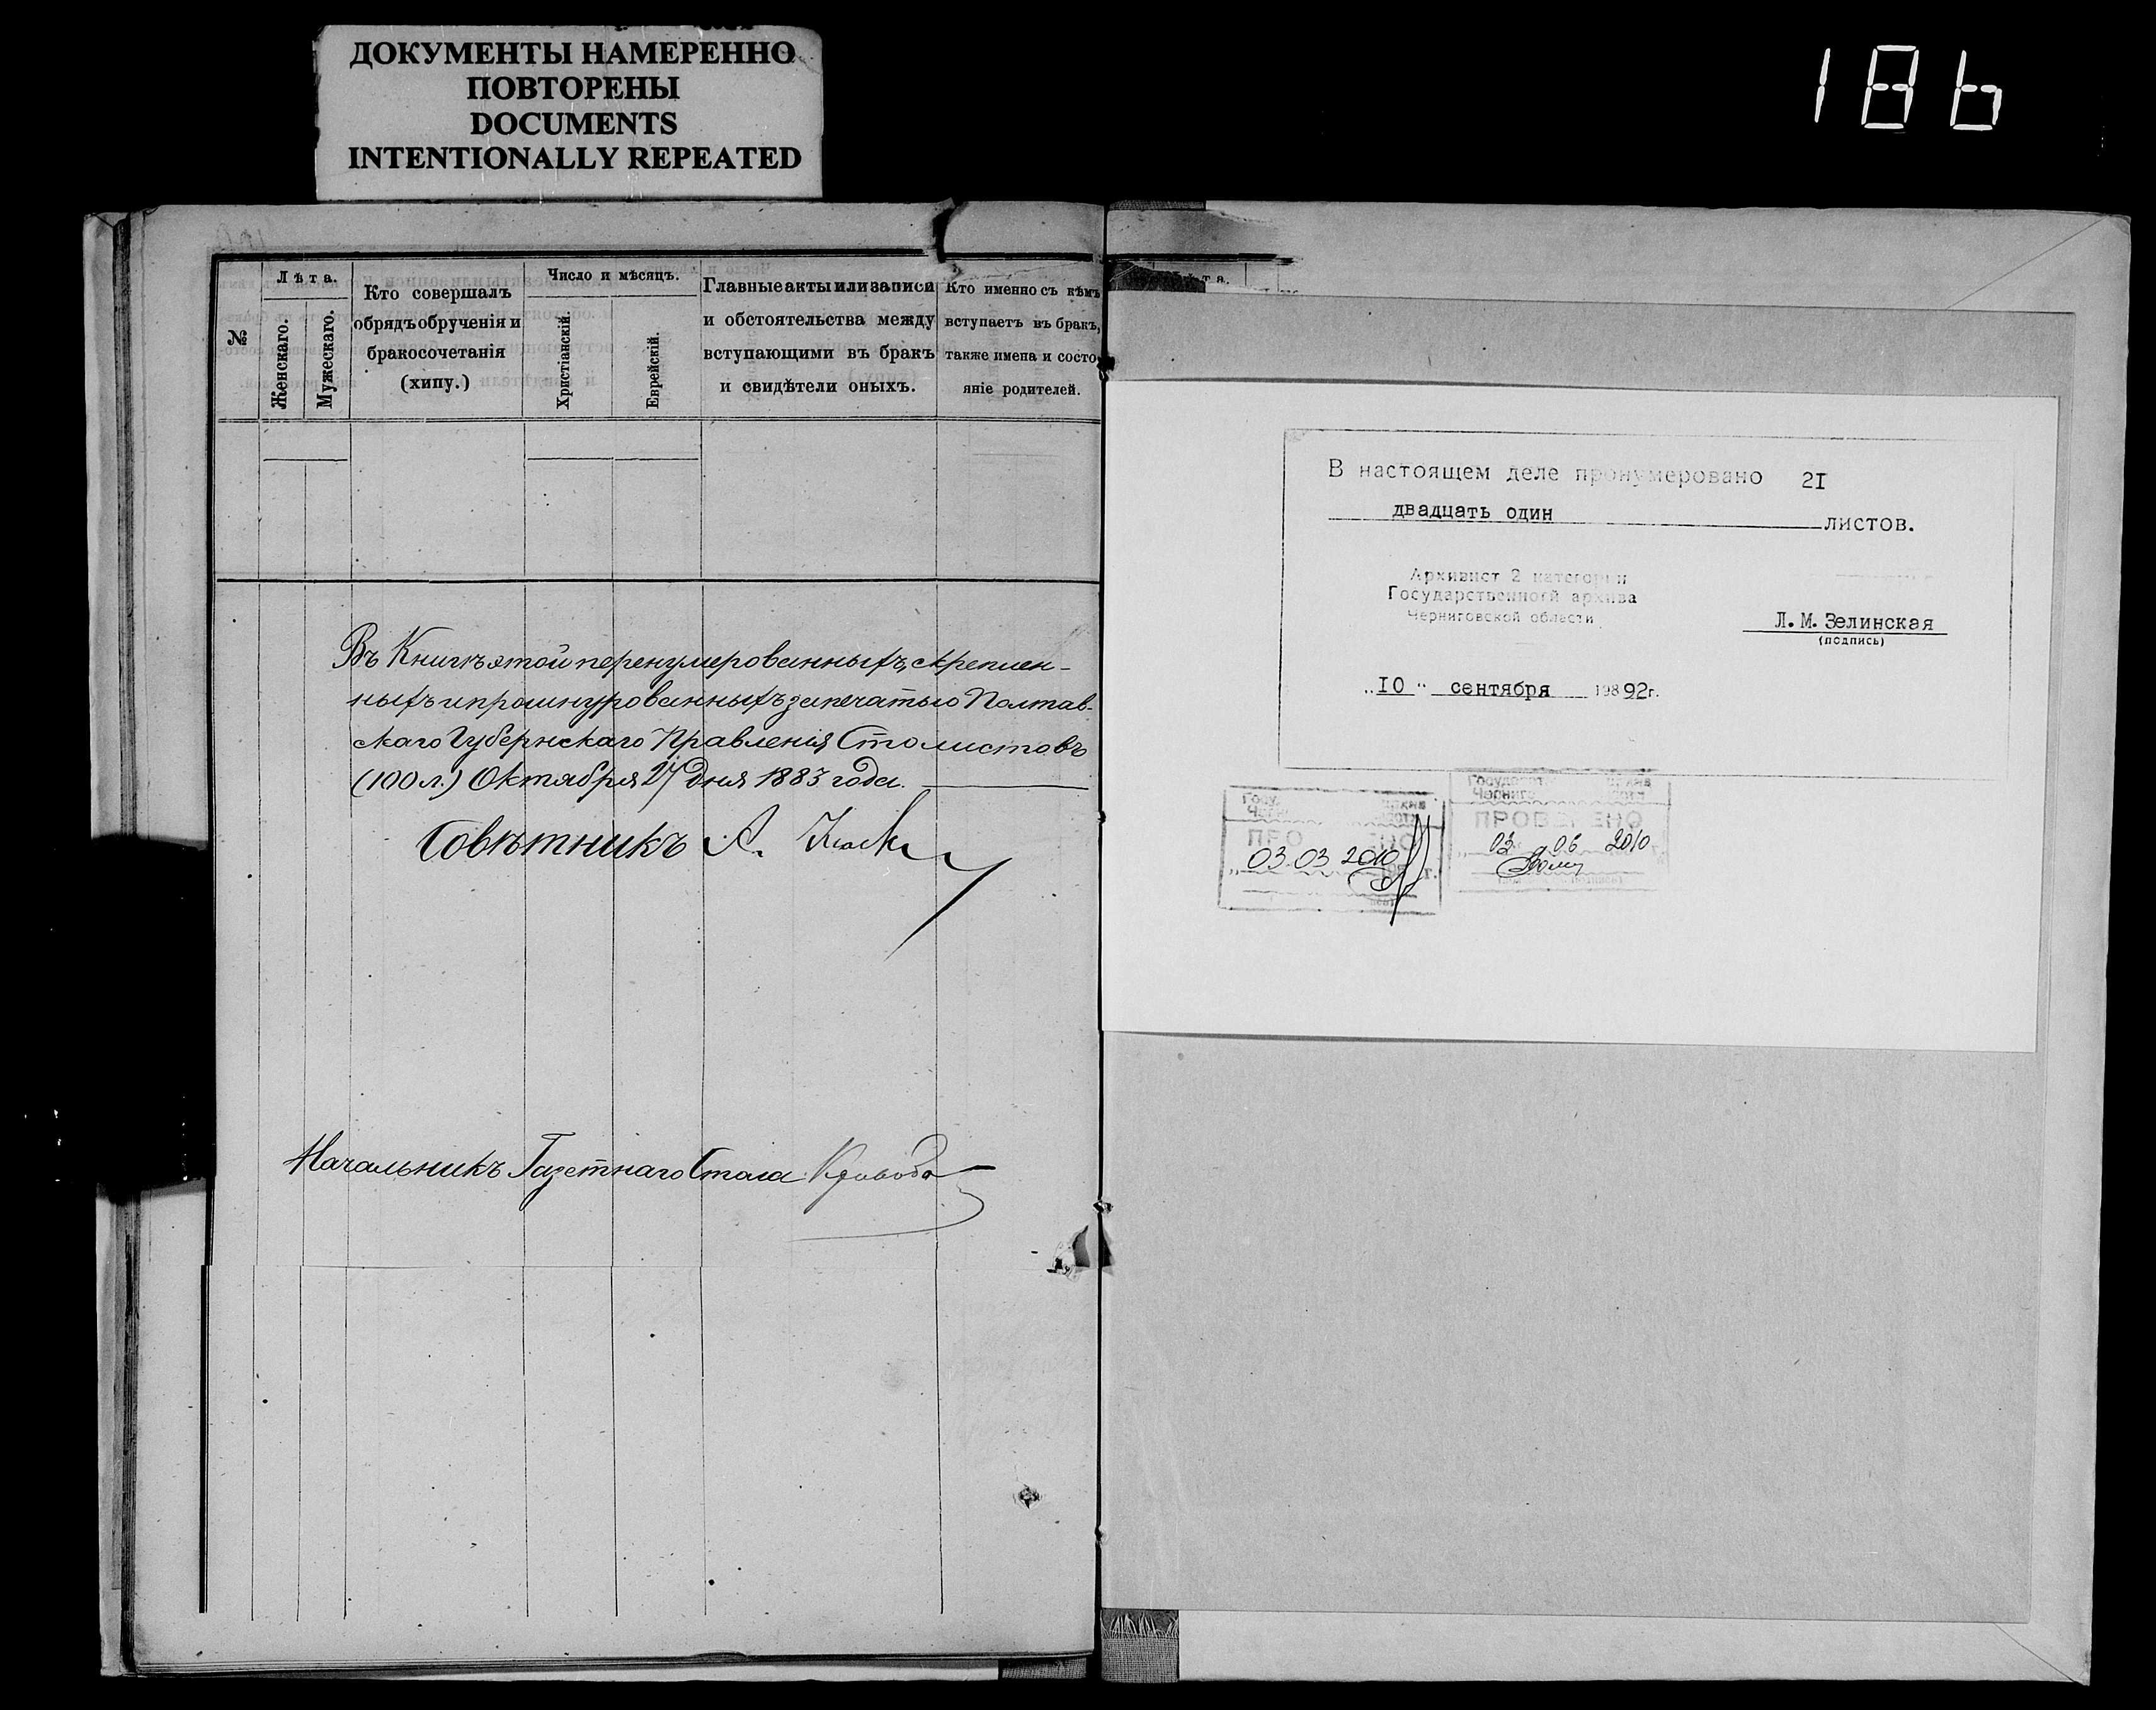 ДОКУМЕНТЫ НАМЕРЕННО
ПОВТОРЕНЫ
DOCUMENTS
INTENTIONALLY REPEATED
186
№
Лѣта.
Женскаго.
Мужескаго.
Кто совершалъ
обрядъ обрученія и
бракосочетанія
(хипу.)
Число и мѣсяцъ.
Христіанскій.
Еврейскій.
Главные акты или записи
и обстоятельства между
вступающими въ бракъ
и свидѣтели оныхъ.
Кто именно съ кѣмъ
вступаетъ въ бракъ,
также имена и состо-
яніе родителей.
Въ Книгѣ этой перенумерованныхъ, скреплен-
ныхъ и прошнурованныхъ за печатью Полтав-
скаго Губернскаго Правленія Сто листовъ
(100 л.) Октября 27 дня 1883 года.
Совѣтникъ А.
Начальникъ Газетнаго Стола
В настоящем деле пронумеровано 2I
двадцать один листов.
Архивист 2 категории
Государственной архива
Черниговской области
Л.М.Зелинская
(подпись)
"I0" сентября 19892г.
03 03 2010
г.
ПРОВЕРЕНО
03 06 2010